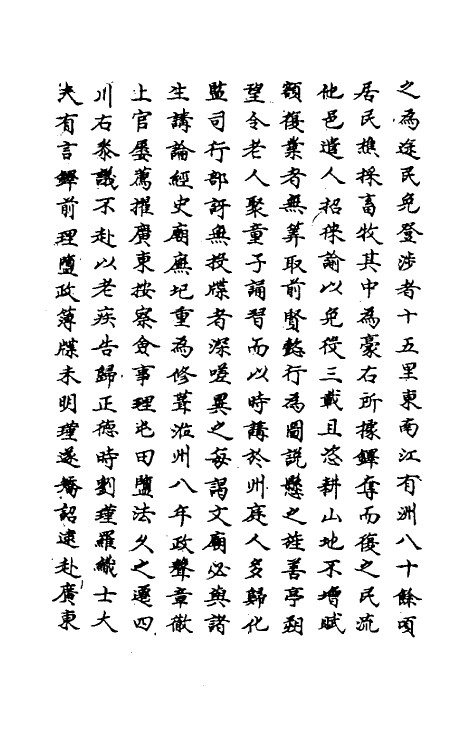 之為逵民免登涉者十五里東南江有洲八十餘頃
居民樵採畜牧其中為豪右所據鐸奪而復之民流
他邑遣人招徠諭以免役三載且恣耕山地不增賦
額復業者無算取前賢懿行為圖說懸之旌善亭朔
望令老人聚童子誦習而以時講於州庭人多歸化
監司行部訝無投牒者深嗟異之每謁文廟必與諸
生講論經史廟廡圮重為修葺涖州八年政聲章徹
上官屢薦擢廣東按察僉事理屯田鹽法久之遷四
川右參議不赴以老疾告歸正德時劉瑾羅織士大
夫有言鐸前理鹽政簿牒未明瑾遂矯詔逮赴廣東